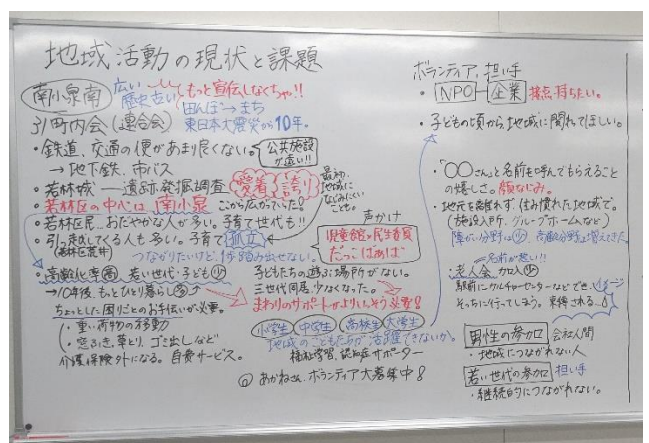 地域活動の現状と課題
南小泉南
広い
歴史古い
もっと宣伝しなくちゃ!!
田んぼ→まち
町内会(連合会)
東日本大震災から10年。
・鉄道、交通の便があまり良くない。
公共施設が遠い!!
→地下鉄、市バス
・若林城――遺跡発掘調査
愛着
誇り
・若林区の中心は南小泉
ここから広がっていった!!
最初、地域になじみにくいことも。
・若林区民…おだやかな人が多い。子育て世代も!!
・引っ越ししてくる人も多い。子育て孤立
(若林区荒井)
つながりたいけど、1歩踏み出せない。
声かけ
児童館と民生委員
だっこはあぱ
・高齢化率高 若い世代・子ども少
→10年後、もっとひとり暮らし多
ちょっとした困りごとのお手伝いが必要。
・重い荷物の移動
・窓ふき、草とり、ゴミ出しなど
介護保険外になる。自費サービス。
子どもたちの遊ぶ場所がない。
三世代同居、少なくなった。
まわりのサポートがよりいっそう必要!
小学生 中学生 高校生 大学生
地域のこどもたちが活躍できないか。
福祉学習、認知症サポーター
@あかねさん、ボランティア大募集中!
ボランティア、担い手
・NPO―企業 接点、持ちたい。
・子どもの頃から地域に関わってほしい。
・「〇〇さん」と名前を呼んでもらえること
の嬉しさ。顔なじみ。
・地元を離れず、住み慣れた地域で。
(施設入所、グループホームなど)
障がい分野は少、高齢分野は増えてきた
名前が悪い!!
・老人会、加入少
イメージ
駅前にカルチャーセンターなどでき、
そっちに行ってしまう。束縛される…!
男性の参加 会社人間
・地域につながれない人
若い世代の参加 担い手
・継続的につながれない。